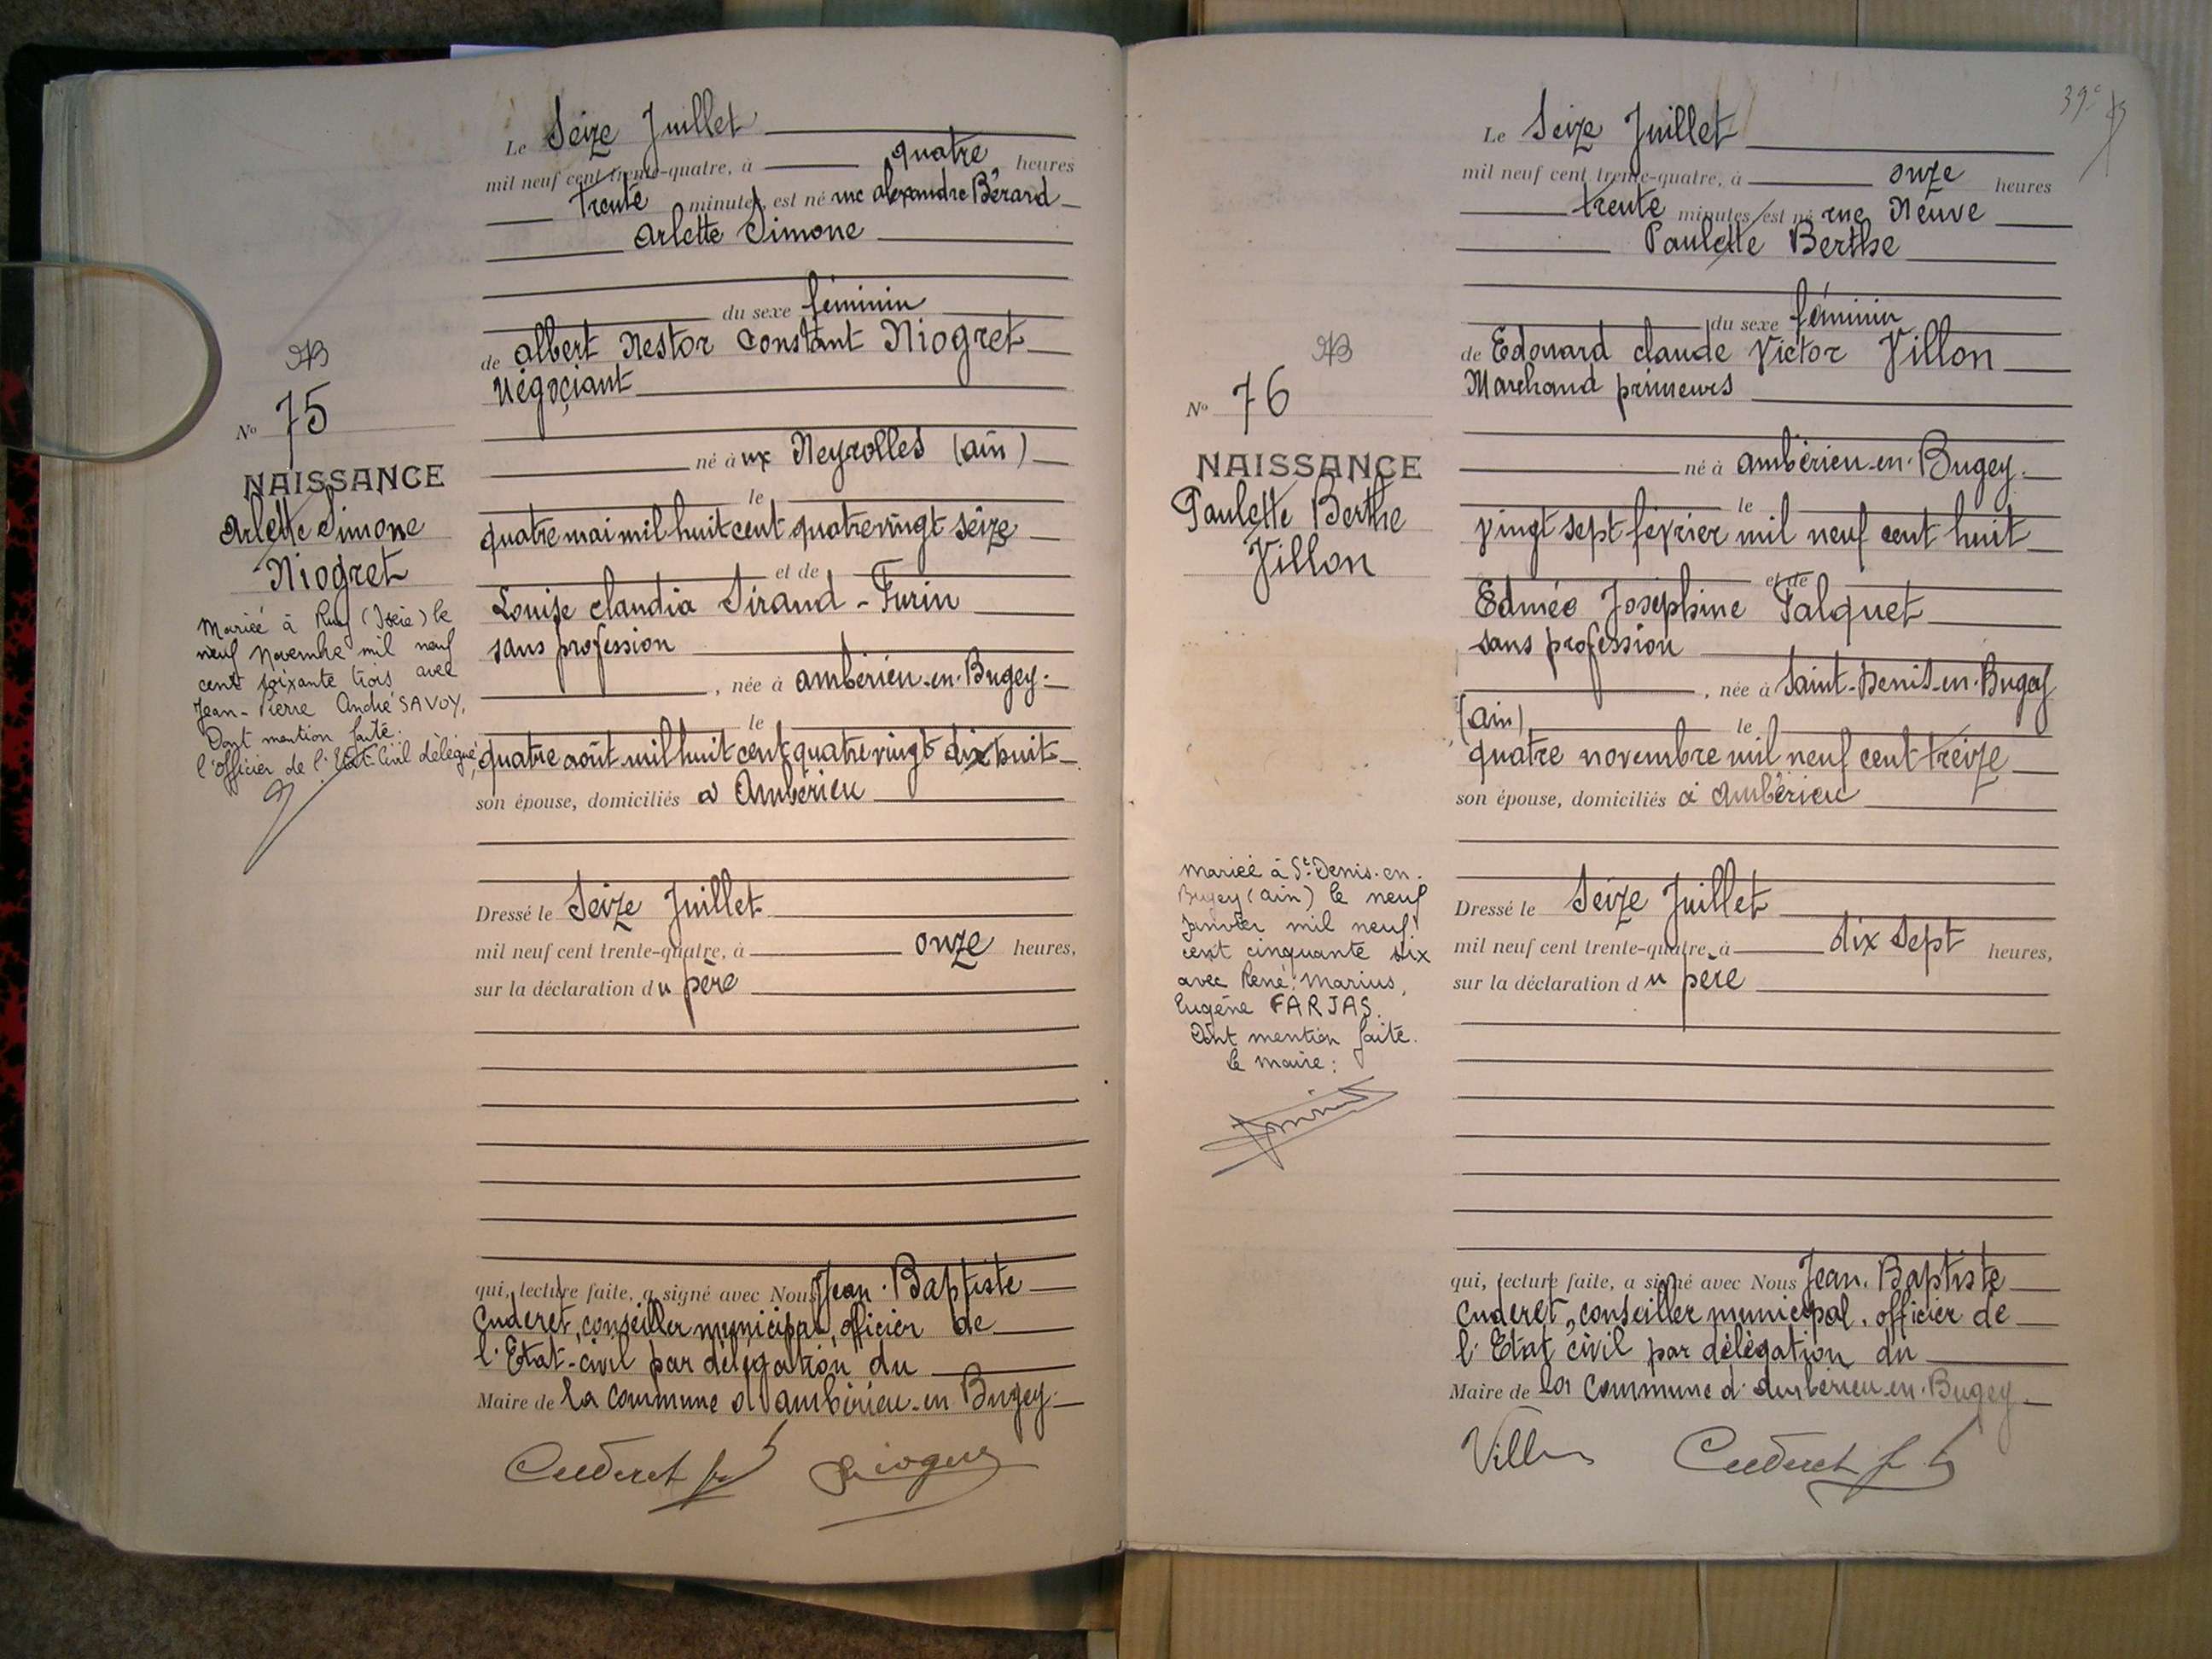 Le Seize Juillet
mil neuf cent trente-quatre, à quatre heures
trente minutes, est né rue alexandre Bérard
arlette Simone
du sexe féminin
de albert Nestor Constant Niogret
Négoçiant
né à ux Neyrolles (ain)
le
quatre mai mil huit cent quatre vingt seize
et de
Louise claudia Sirand-Furin
sans profession
, née à ambérieu-en-Bugey.
le
quatre août mil huit cent quatre vingt dix huit
son épouse, domiciliés à Ambérieu
Dressé le Seize Juillet
mil neuf cent trente-quatre, à onze heures,
sur la déclaration du père
qui, lecture faite, a signé avec Nous Jean-Baptiste
Cuderet, conseiller municipal, officier de
l'Etat-civil par délégation du
Maire de la commune d'ambérieu-en-Bugey.
Cuderet
AB
N° 75
NAISSANCE
Arlette Simone
Niogret
Mariée à Ruy (Isère) le
neuf Novembre mil neuf
cent soixante trois avec
Jean-Pierre André SAVOY.
Dont mention faite.
l'officier de l'Etat-Civil délégué,
39e
Le Seize Juillet
mil neuf cent trente-quatre, à onze heures
trente minutes, est né rue Neuve
Paulette Berthe
du sexe féminin
de Edouard claude Victor Villon
Marchand primeurs
né à ambérieu-en-Bugey.
le
vingt sept février mil neuf cent huit
et de
Edmée Joséphine Falquet
sans profession
, née à Saint-Denis-en-Bugey
(ain) le
quatre novembre mil neuf cent treize
son épouse, domiciliés à Ambérieu
Dressé le Seize Juillet
mil neuf cent trente-quatre, à dix sept heures,
sur la déclaration du père
qui, lecture faite, a signé avec Nous Jean-Baptiste
Cuderet, conseiller municipal, officier de
l'Etat civil par délégation du
Maire de la Commune d'Ambérieu-en-Bugey
Villon Cuderet
AB
N° 76
NAISSANCE
Paulette Berthe
Villon
mariée à St-Denis-en-
Bugey (ain) le neuf
Janvier mil neuf
cent cinquante six
avec René, Marius,
Eugène FARJAS.
Dont mention faite.
le maire: